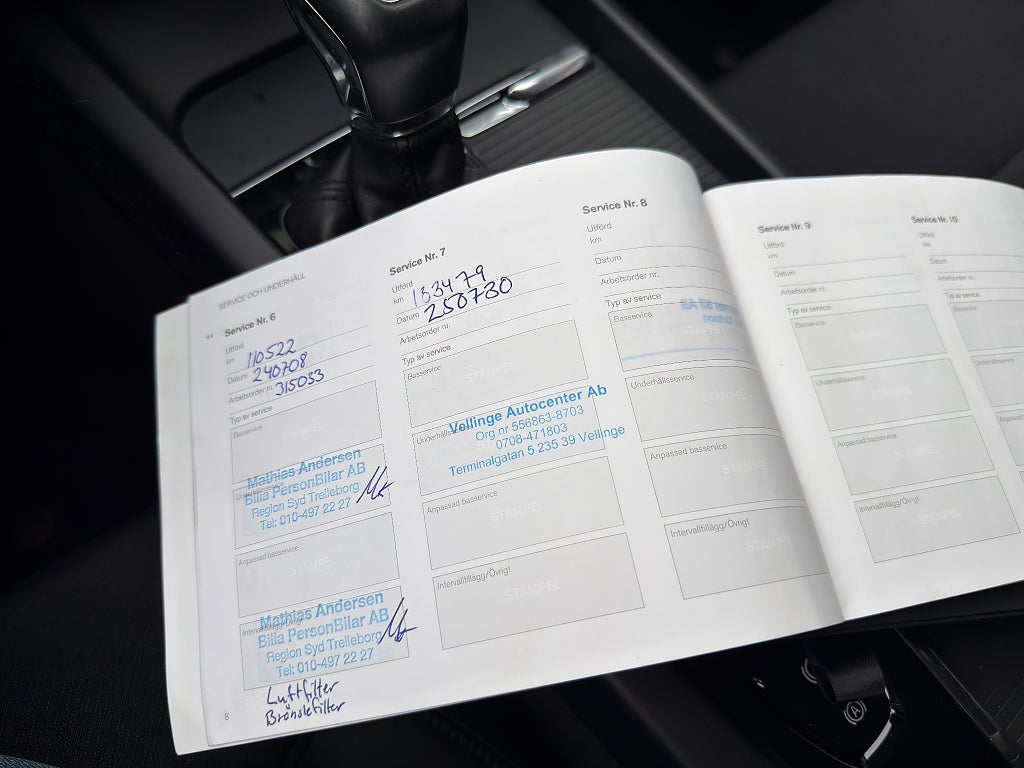 SERVICE OCH UNDERHÅLL
Service Nr. 6
Utförd
km 110522
Datum 240708
Arbetsorder nr. 315033
Typ av service
Basservice
STÄMPEL
Mathias Andersen
Bilia PersonBilar AB
Region Syd Trelleborg
Tel: 010-497 22 27
Anpassad basservice
STÄMPEL
Mathias Andersen
Bilia PersonBilar AB
Region Syd Trelleborg
Tel: 010-497 22 27
Luftfilter
Bränslefilter
8
Service Nr. 7
Utförd
km 133479
Datum 250730
Arbetsorder nr.
Typ av service
Basservice
STÄMPEL
Vellinge Autocenter Ab
Org nr 556863-8703
0708-471803
Terminalgatan 5 235 39 Vellinge
Anpassad basservice
STÄMPEL
Intervalltillägg/Övrigt
STÄMPEL
Service Nr. 8
Utförd
km
Datum
Arbetsorder nr.
Typ av service
Basservice
STÄMPEL
Underhållsservice
STÄMPEL
Anpassad basservice
STÄMPEL
Intervalltillägg/Övrigt
STÄMPEL
Service Nr. 9
Utförd
km
Datum
Arbetsorder nr.
Typ av service
Basservice
STÄMPEL
Underhållsservice
STÄMPEL
Anpassad basservice
STÄMPEL
Intervalltillägg/Övrigt
STÄMPEL
Service Nr. 10
Utförd
km
Datum
Arbetsorder nr.
Typ av service
Basservice
A